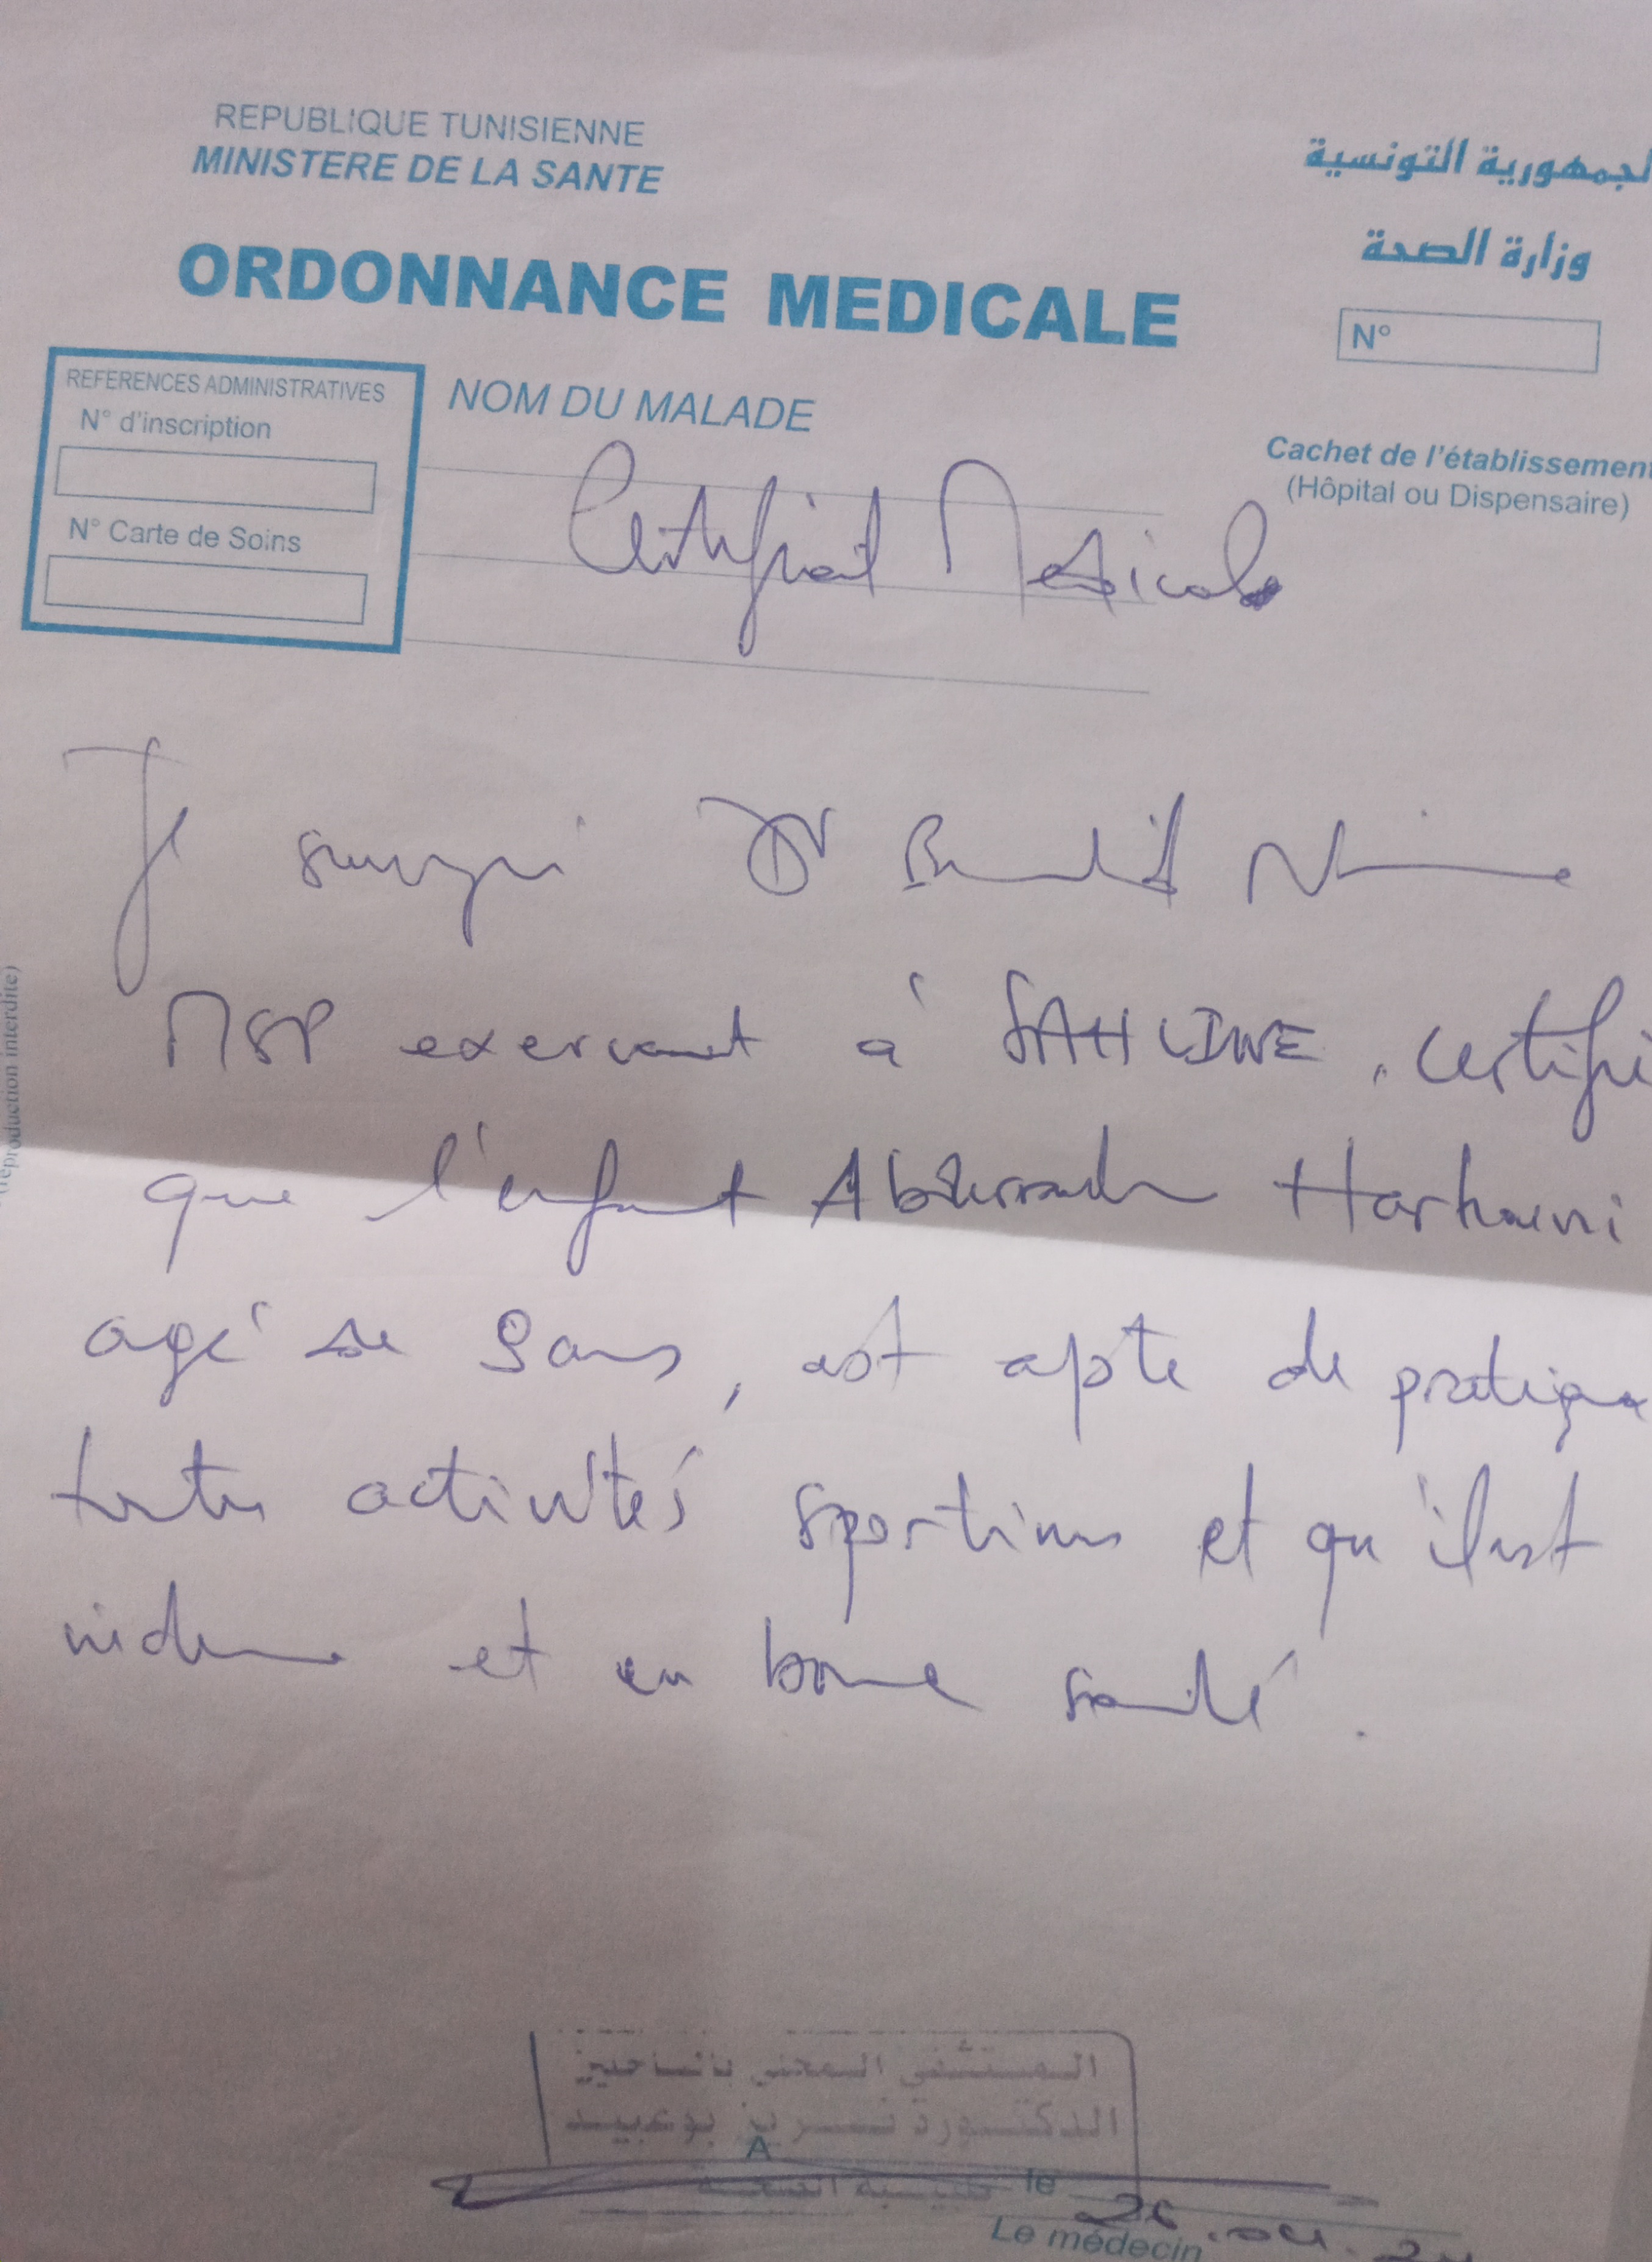 REPUBLIQUE TUNISIENNE
MINISTERE DE LA SANTE
الجمهورية التونسية
وزارة الصحة
ORDONNANCE MEDICALE
N°
REFERENCES ADMINISTRATIVES
N° d'inscription
N° Carte de Soins
NOM DU MALADE
Cachet de l'établissement
(Hôpital ou Dispensaire)
Certificat Medicale
Je soussigné Dr
MSP exerçant à SAHLINE, certifie
que l'enfant Harhouni
agé de 9 ans, est apte de pratiquer
toutes activités sportives et qu'il est
indemne et en bonne santé.
(reproduction interdite)
المستشفى المحلي بالساحلين
الدكتورة بوعبيد
طبيبة الصحة
A le
Le médecin